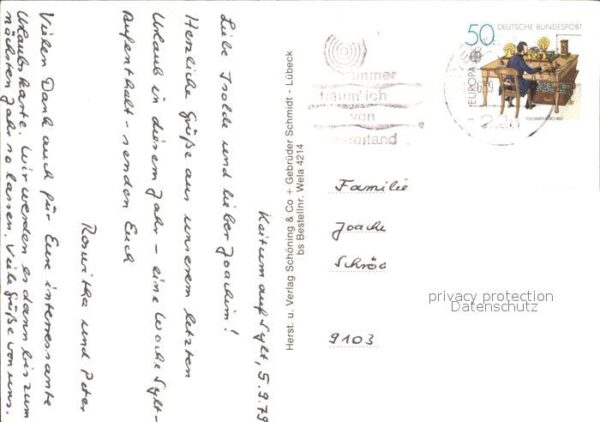 Keitum auf Sylt, 5.9.79
Liebe Isolde und lieber Joachim!
Herzliche Grüße aus unserem letzten
Urlaub in diesem Jahr - eine Woche Sylt-
Aufenthalt - senden Euch
Roswitha und Peter
Vielen Dank auch für Eure interessante
Urlaubskarte. Wir werden es dann bis zum
nächsten Jahr so lassen. Viele Grüße von uns.
Herst. u. Verlag Schöning & Co + Gebrüder Schmidt - Lübeck
bs Bestellnr. Wela 4214
50
DEUTSCHE BUNDESPOST
EUROPA
immer
träum' ich
von
Familie
Joachi
Schröd
9103
privacy protection
Datenschutz